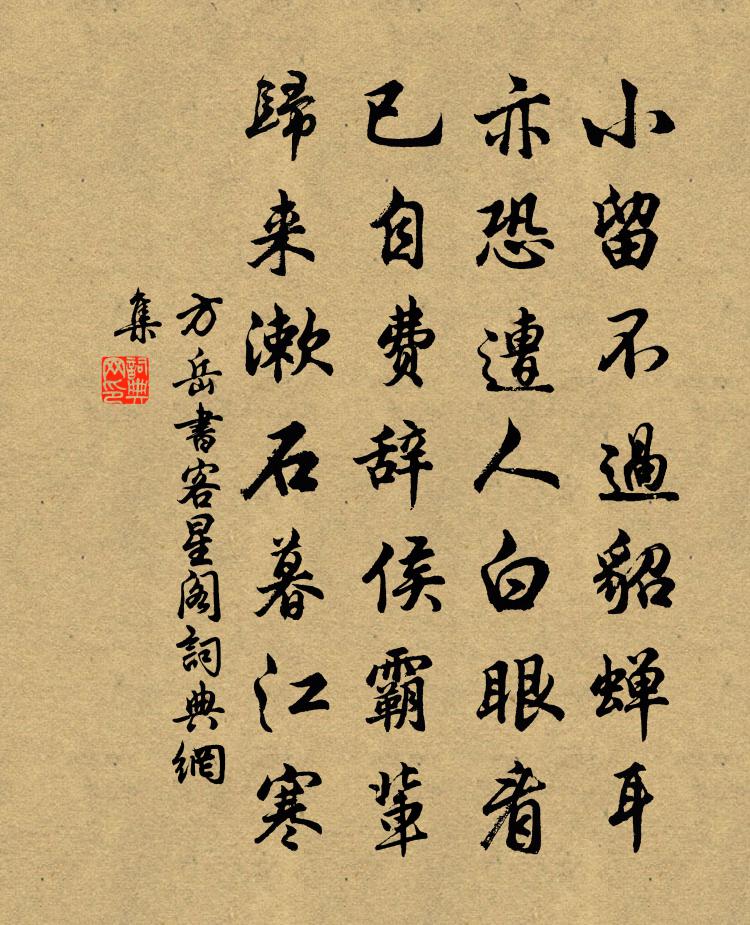 小留不過貂蝉耳
亦恐遭人白眼看
已自費辞侯霸輩
歸来漱石暮江寒
方岳書客星阁詞典網
集
詞典网印